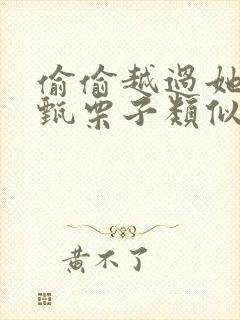 偷偷越過她
甄栗子類似
黃不了